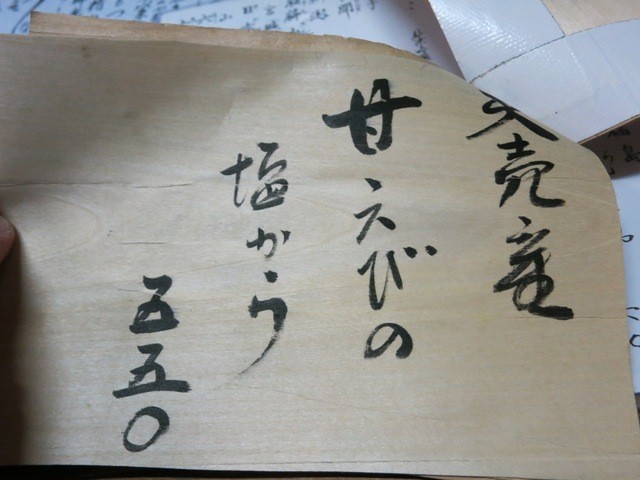 天売産
甘えびの
塩から
五五〇